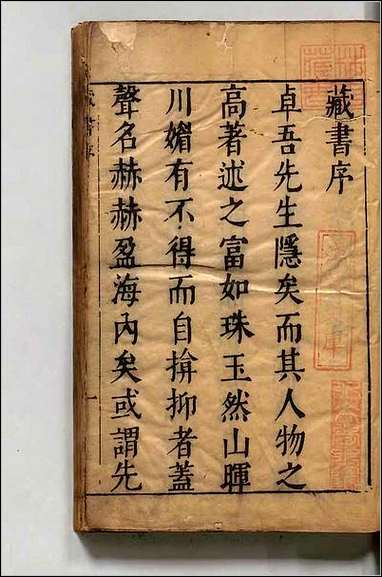 藏書序
卓吾先生隱矣而其人物之
高著述之富如珠玉然山暉
川媚有不得而自揜抑者蓋
聲名赫赫盈海內矣或謂先